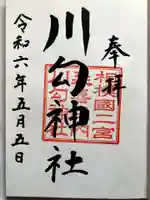 奉拝
相模國二宮
川勾神社
令和六年五月五日